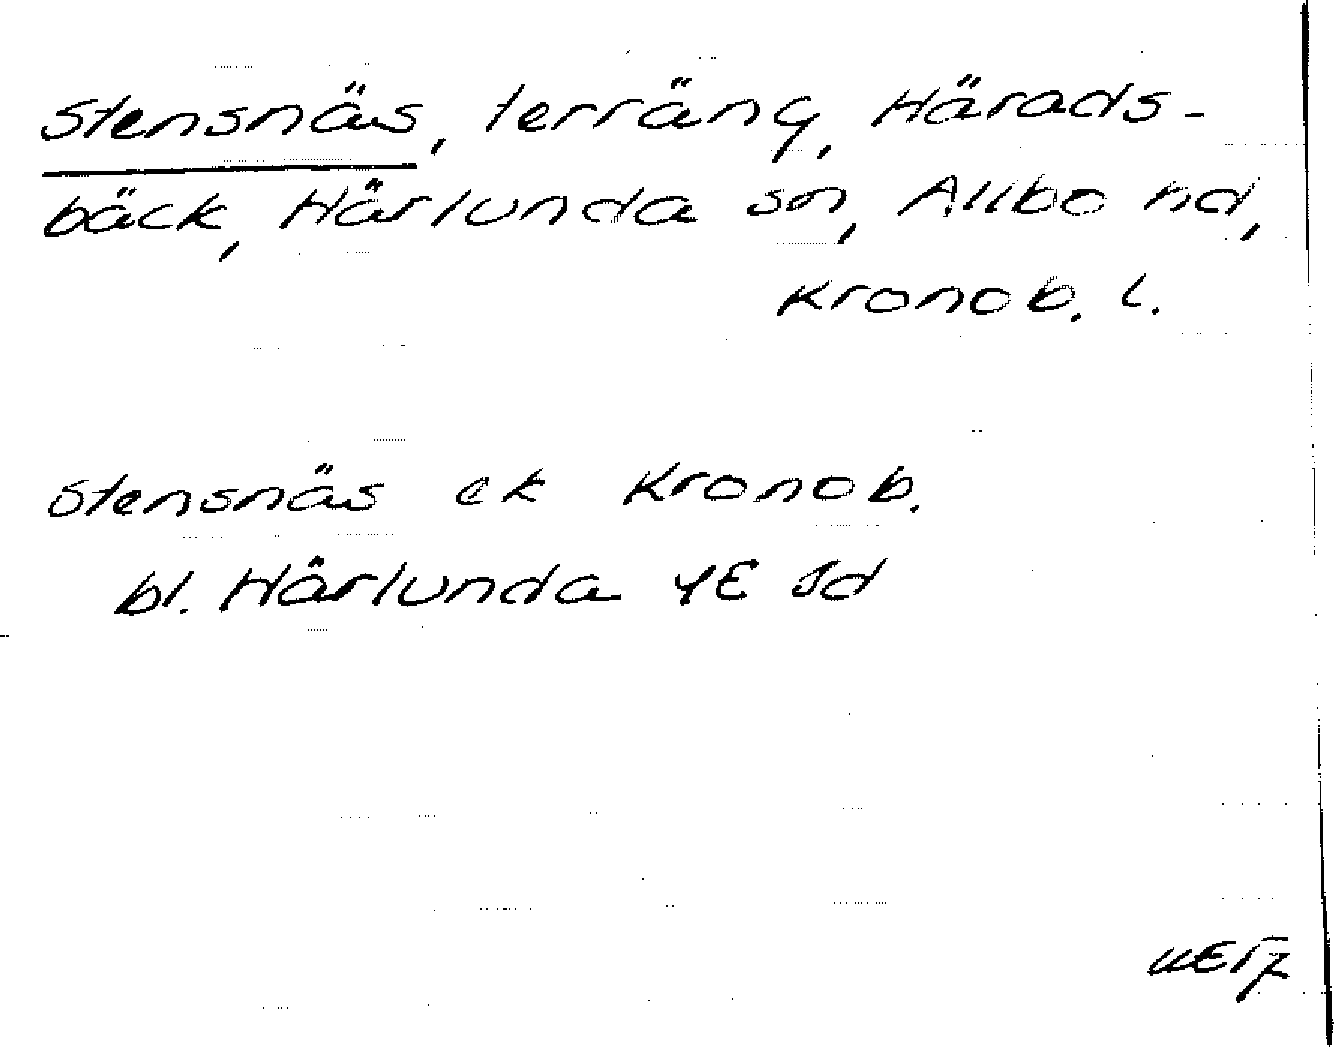 Stensnäs, terräng, Härads-
bäck, Härlunda sn, Allbo hd,
Kronob. l.
Stensnäs ek Kronob.
bl. Härlunda 4E Jd